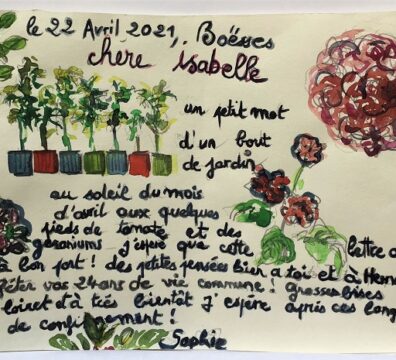 le 22 Avril 2021, Boësses
chere isabelle
un petit mot
d'un bout
de jardin
au soleil du mois
d'avril aux quelques
pieds de tomate et des
géraniums j'espère que cette lettre a
à bon port ! des petites pensées bien a toi et à
fêter vos 24 ans de vie commune ! grosses bises
loiret d'à très bientôt J'espère après ces long
de confinement !
Sophie